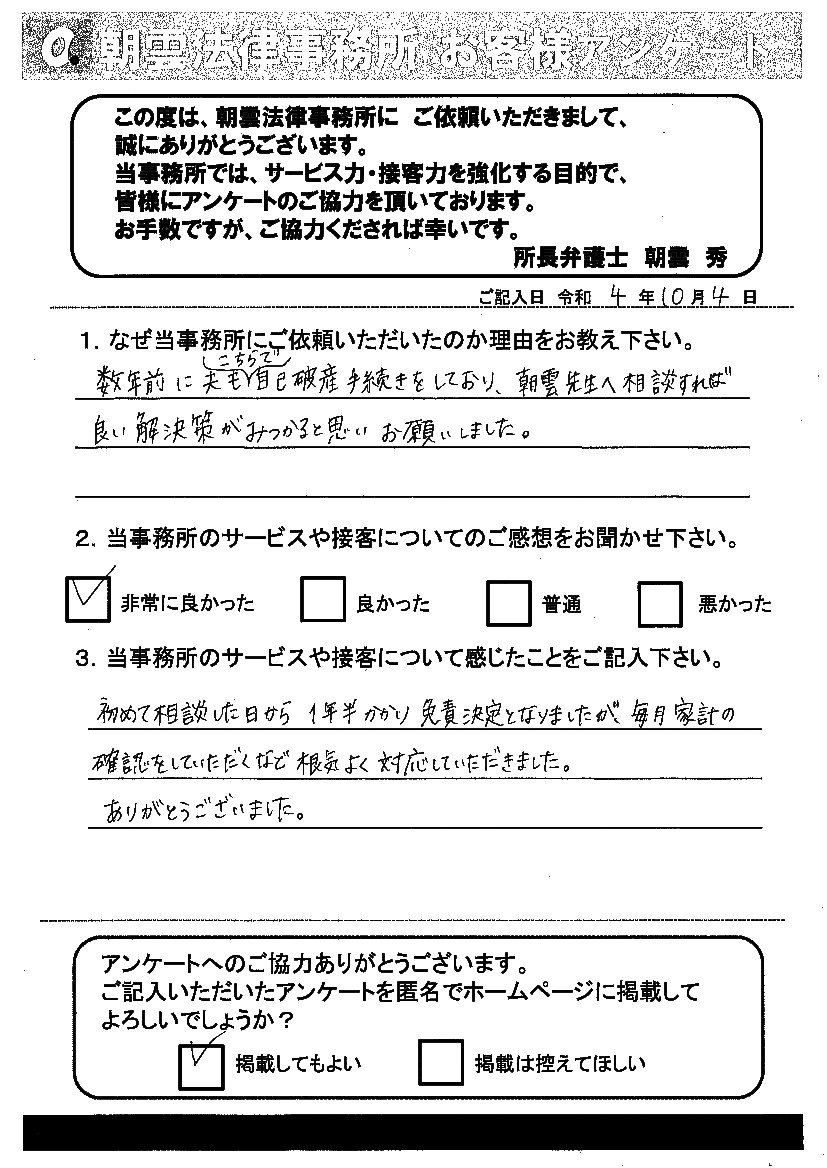 朝雲法律事務所 お客様アンケート
この度は、朝雲法律事務所に ご依頼いただきまして、
誠にありがとうございます。
当事務所では、サービス力・接客力を強化する目的で、
皆様にアンケートのご協力を頂いております。
お手数ですが、ご協力くだされば幸いです。
所長弁護士 朝雲 秀
ご記入日 令和 4 年 10 月 4 日
1. なぜ当事務所にご依頼いただいたのか理由をお教え下さい。
こちらで
数年前に夫も自己破産手続きをしており、朝雲先生へ相談すれば
良い解決策がみつかると思いお願いしました。
2. 当事務所のサービスや接客についてのご感想をお聞かせ下さい。
非常に良かった 良かった 普通 悪かった
3. 当事務所のサービスや接客について感じたことをご記入下さい。
初めて相談した日から 1年半かかり免責決定となりましたが、毎月家計の
確認をしていただくなど根気よく対応していただきました。
ありがとうございました。
アンケートへのご協力ありがとうございます。
ご記入いただいたアンケートを匿名でホームページに掲載して
よろしいでしょうか？
掲載してもよい 掲載は控えてほしい